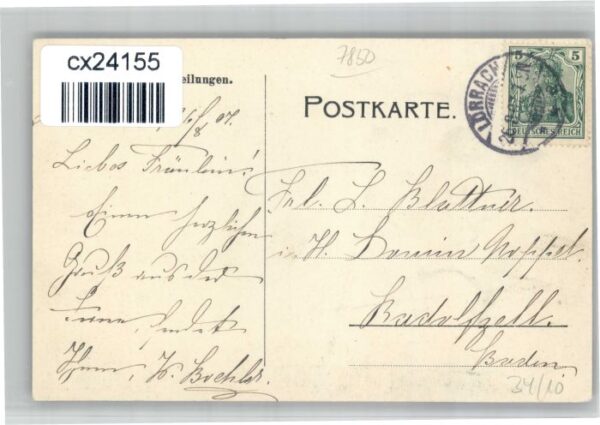 cx24155
eilungen.
7850
POSTKARTE.
LÖRRACH
5 5
DEUTSCHES REICH
26/8 07.
Liebes Fräulein!
Einen herzlichen
Gruß aus der
Ferne, sendet
Ihnen, K. Boehler.
Frl. L. Blattner.
i. H.
Radolfzell.
Baden
34/10